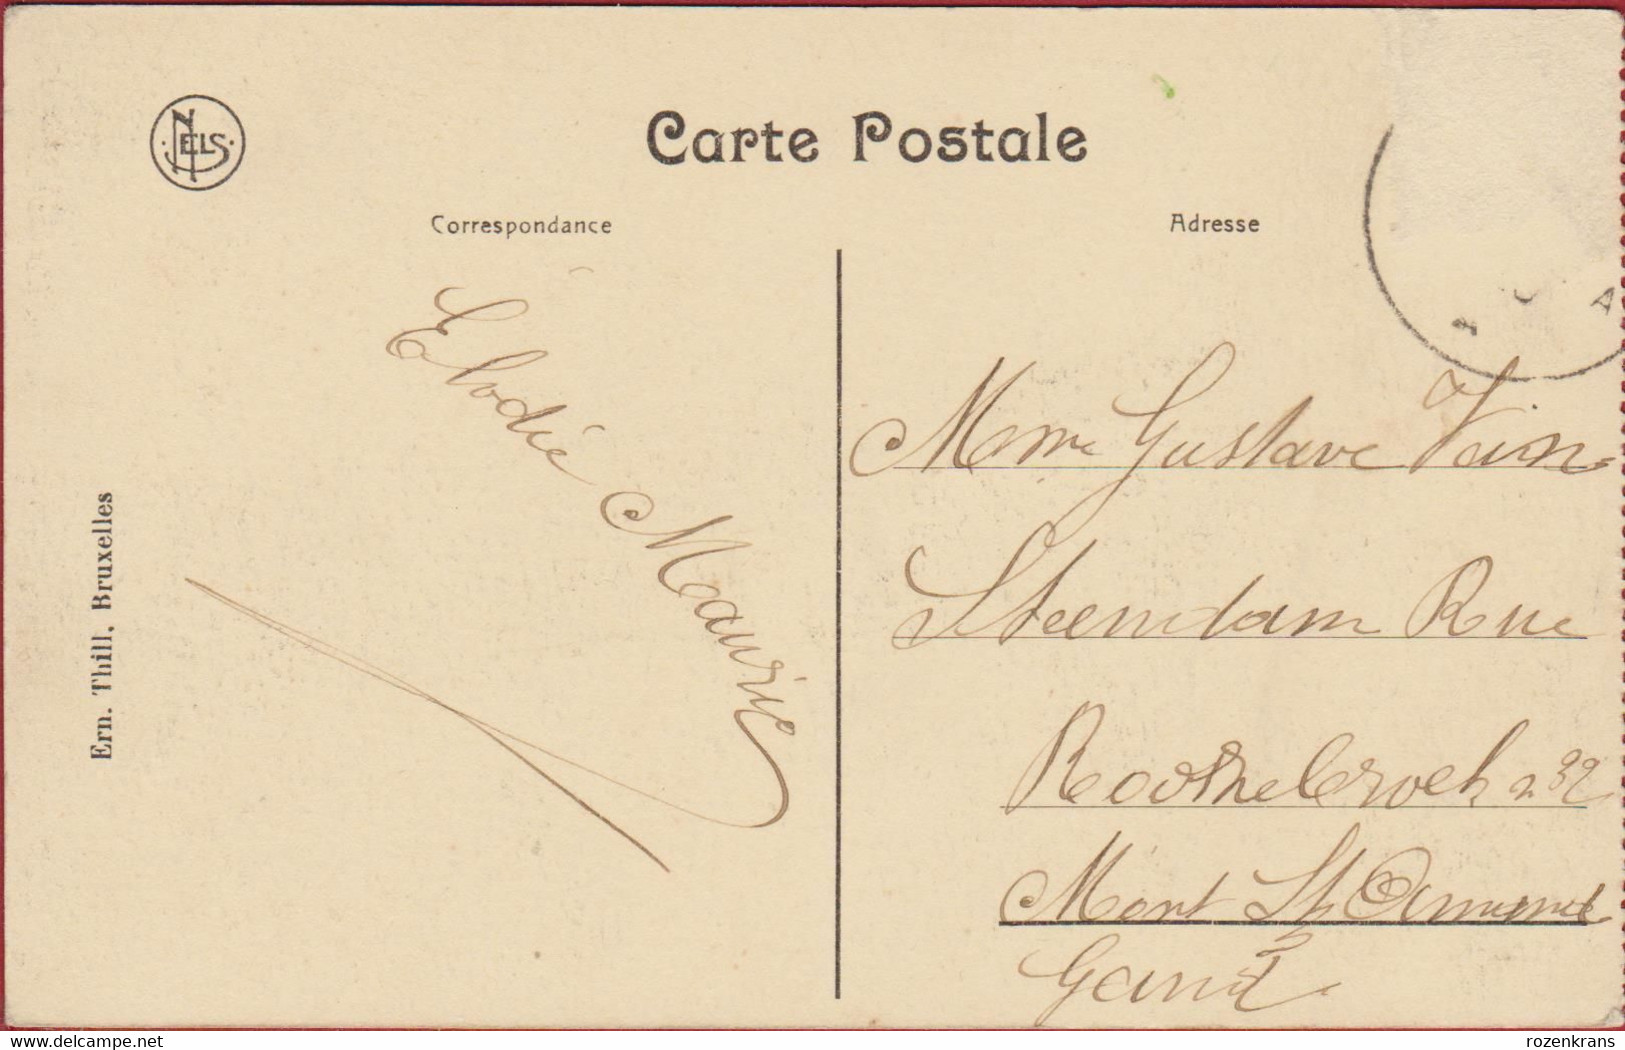 NELS
Carte Postale
Correspondance
Adresse
Élodie Maurice
Mme Gustave Van
Steendam Rue
Roothebroeh n 32
Mont St Amand
Gand
Ern. Thill, Bruxelles
delcampe.net
rozenkrans